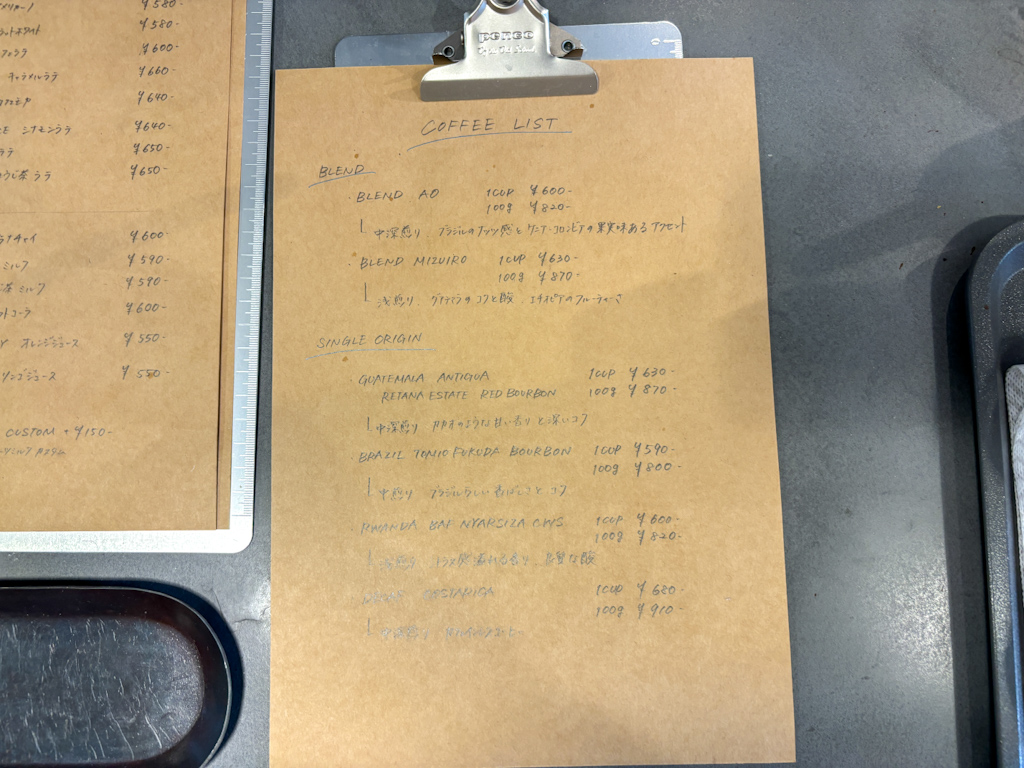 ¥580-
¥580-
¥600-
キャラメルラテ ¥660-
¥640-
シナモンラテ ¥640-
ラテ ¥650-
うじ茶ラテ ¥650-
チャイ ¥600-
ミルク ¥590-
茶ミルク ¥590-
コーラ ¥600-
オレンジジュース ¥550-
リンゴジュース ¥550-
CUSTOM + ¥150-
penco
COFFEE LIST
BLEND
・BLEND AO 1CUP ¥600-
100g ¥820-
中深煎り ブラジルのナッツ感と ケニア・コロンビアの果実味あるアクセント
・BLEND MIZUIRO 1CUP ¥630-
100g ¥870-
浅煎り グアテマラのコクと酸、エチオピアのフルーティーさ
SINGLE ORIGIN
・GUATEMALA ANTIGUA 1CUP ¥630-
RETANA ESTATE RED BOURBON 100g ¥870-
中深煎り カカオのような甘い香りと深いコク
・BRAZIL TOMIO FUKUDA BOURBON 1CUP ¥590-
100g ¥800-
中煎り ブラジルらしい香ばしさとコク
・RWANDA BAF NYARSIZA CWS 1CUP ¥600-
100g ¥820-
浅煎り 溢れる香り、良質な酸
1CUP ¥680-
100g ¥910-